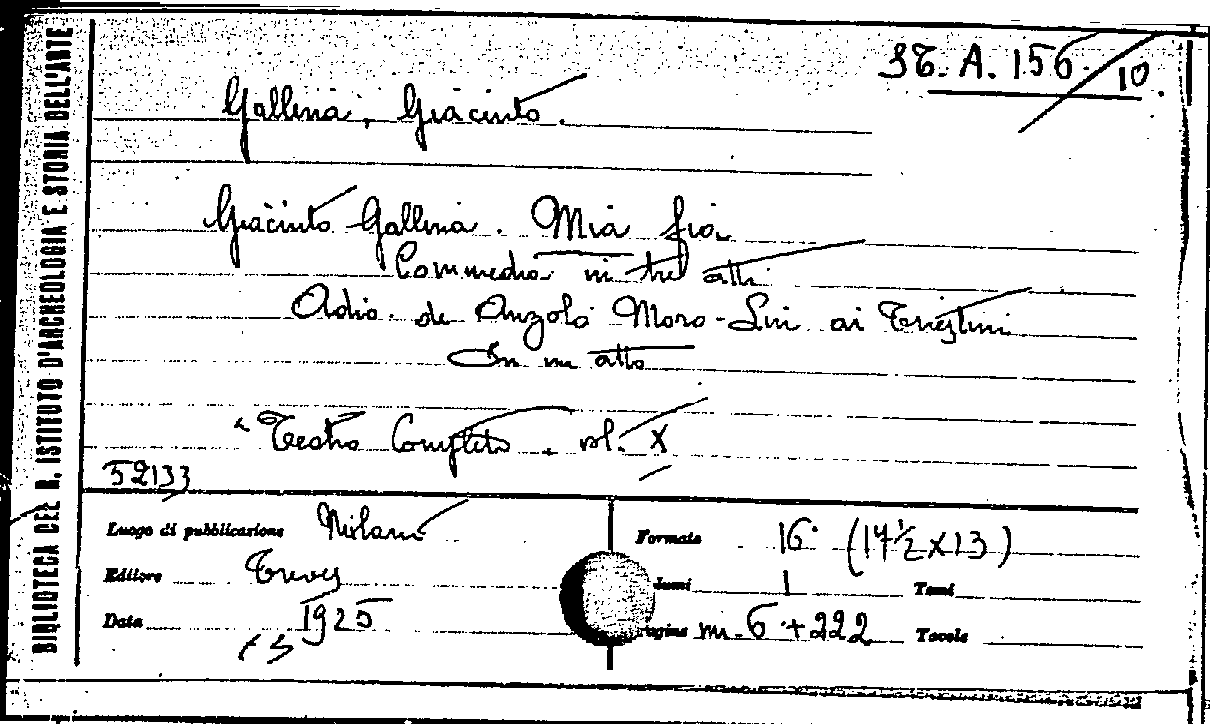 BIBLIOTECA DEL R. ISTITUTO D'ARCHEOLOGIA E STORIA DELL'ARTE
36. A. 156/10.
Gallina, Giacinto.
Giacinto Gallina. Mia fia.
Commedia in tre atti.
Adio. de Anzolo Moro-Lin ai Triestini
In un atto
"Teatro Completo. vol. X
52133
Luogo di pubblicazione Milano
Formato 16° (17½ x 13)
Editore Treves
lumi 1 Tomi
Data 1925
agine m. 6 + 222 Tavole